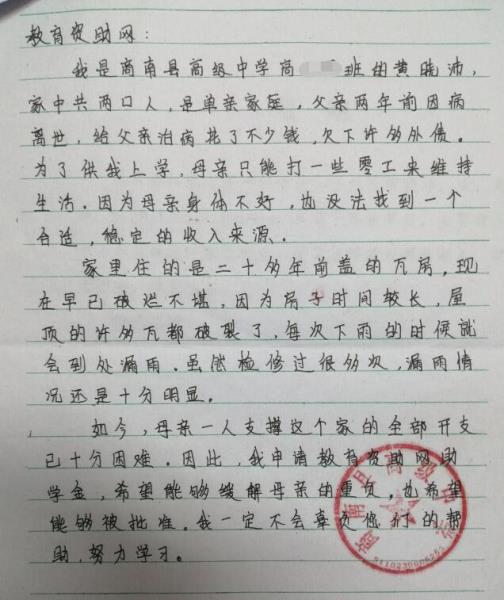 教育资助网：
我是商南县高级中学高 班的黄晓沛，
家中共两口人，是单亲家庭，父亲两年前因病
离世，给父亲治病花了不少钱，欠下许多外债。
为了供我上学，母亲只能打一些零工来维持
生活。因为母亲身体不好，也没法找到一个
合适，稳定的收入来源。
家里住的是二十多年前盖的瓦房，现
在早已破烂不堪，因为房子时间较长，屋
顶的许多瓦都破裂了，每次下雨的时候就
会到处漏雨。虽然检修过很多次，漏雨情
况还是十分明显。
如今，母亲一人支撑这个家的全部开支
已十分困难。因此，我申请教育资助网助
学金，希望能够缓解母亲的重负，也希望
能够被批准。我一定不会辜负您们的帮
助，努力学习。
商南县高级中学